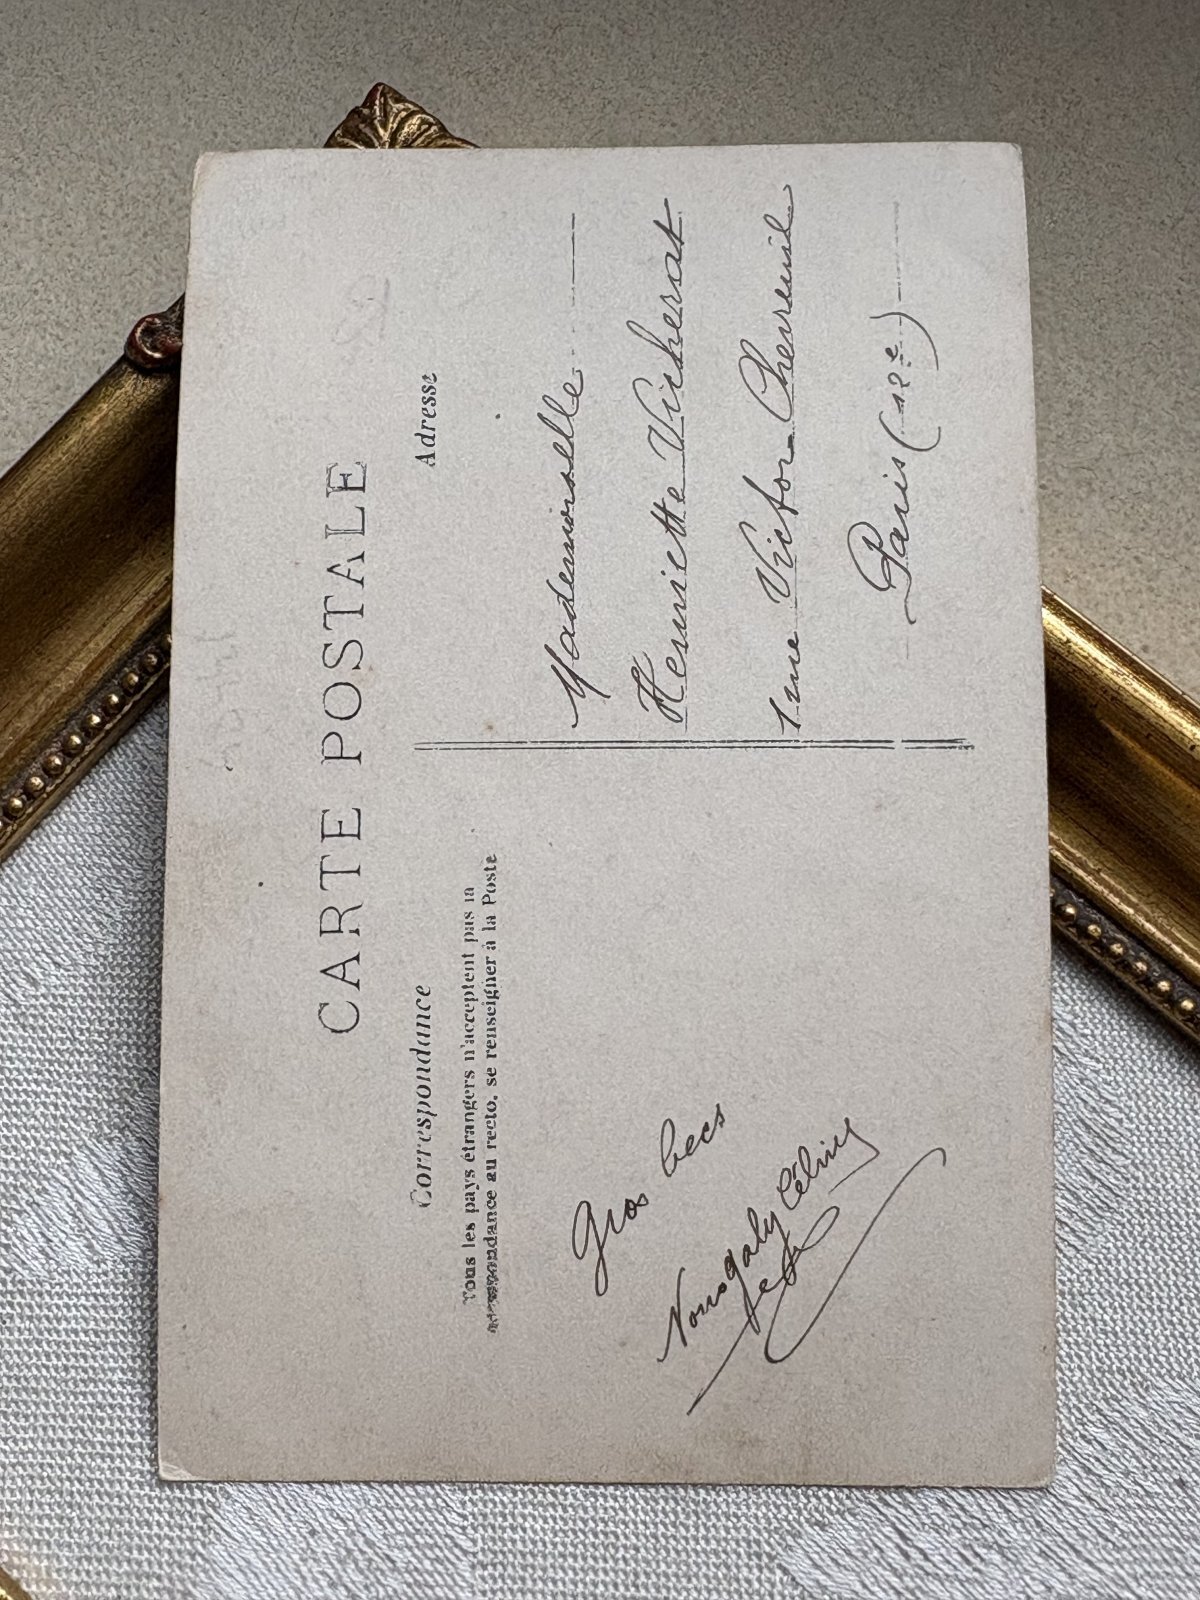 CARTE POSTALE
Correspondance
Tous les pays étrangers n'acceptent pas la
correspondance au recto, se renseigner à la Poste
Gros becs
Nougaly Céline
Adresse
Mademoiselle
Henriette Vicherat
rue Victor-Chevreuil
Paris (12e)